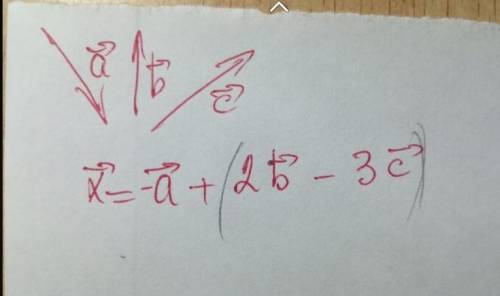 a⃗ b⃗ c⃗
x⃗ = -a⃗ + (2b⃗ - 3c⃗)